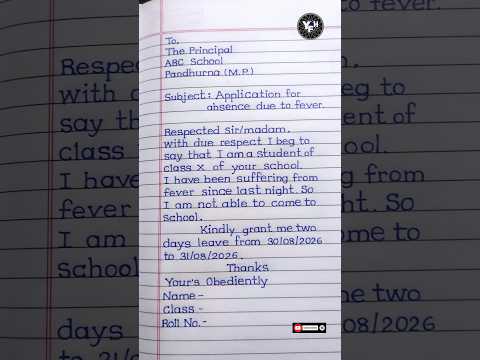 To,
The Principal
ABC School
Pandhurna (M.P.)
Subject: Application for
absence due to fever.
Respected sir/madam,
with due respect I beg to
say that I am a student of
class x of your school.
I have been suffering from
fever since last night. So
I am not able to come to
school.
Kindly grant me two
days leave from 30/08/2026
to 31/08/2026.
Thanks
Your's Obediently
Name-
Class-
Roll No.-